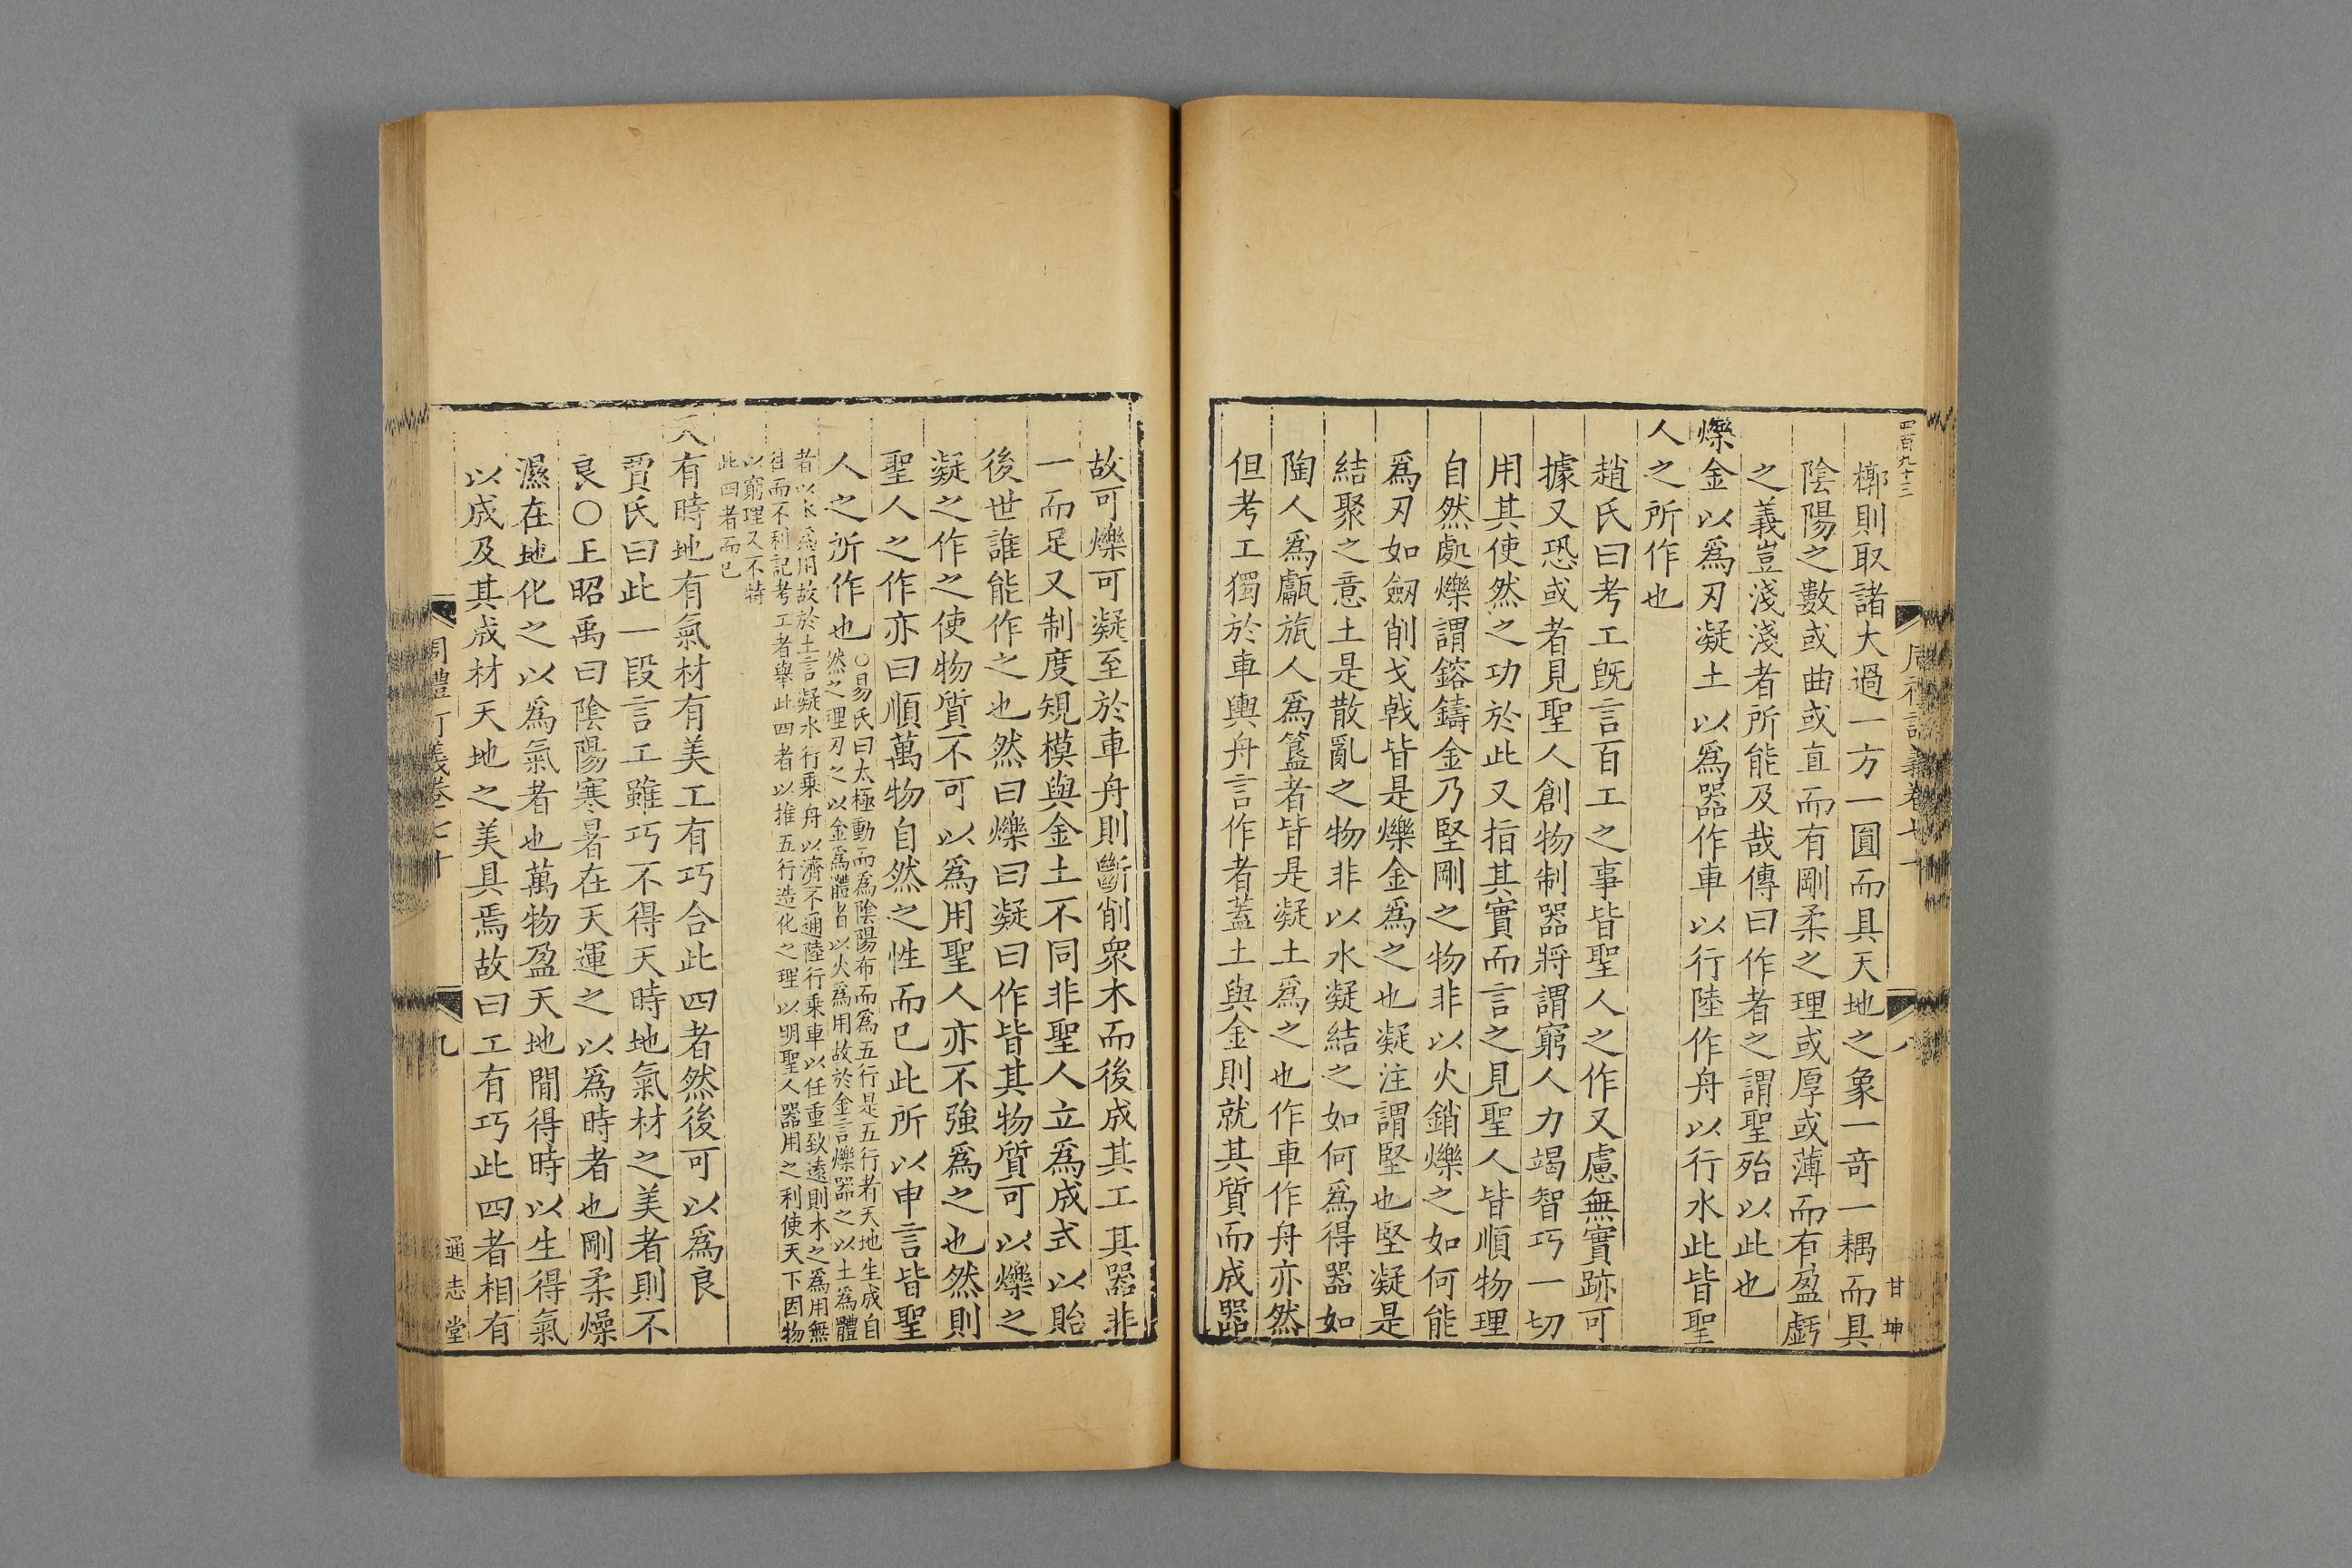 四百九十三
槨則取諸大過一方一圓而具天地之象一奇一耦而具
陰陽之數或曲或直而有剛柔之理或厚或薄而有盈虧
之義豈淺淺者所能及哉傳曰作者之謂聖殆以此也
爍金以爲刃凝土以爲器作車以行陸作舟以行水此皆聖
人之所作也
趙氏曰考工旣言百工之事皆聖人之作又慮無實跡可
據又恐或者見聖人創物制器將謂窮人力竭智巧一切
用其使然之功於此又指其實而言之見聖人皆順物理
自然處爍謂鎔鑄金乃堅剛之物非以火銷爍之如何能
爲刃如劒削戈戟皆是爍金爲之也凝注謂堅也堅凝是
結聚之意土是散亂之物非以水凝結之如何爲得器如
陶人爲甗旊人爲簋者皆是凝土爲之也作車作舟亦然
但考工獨於車輿舟言作者蓋土與金則就其質而成器
八
甘坤
故可爍可凝至於車舟則斷削衆木而後成其工其器非
一而足又制度規模與金土不同非聖人立爲成式以貽
後世誰能作之也然曰爍曰凝曰作皆其物質可以爍之
凝之作之使物質不可以爲用聖人亦不強爲之也然則
聖人之作亦曰順萬物自然之性而已此所以申言皆聖
人之所作也
○易氏曰太極動而爲陰陽布而爲五行是五行者天地生成自
然之理刃之以金爲體者以火爲用故於金言爍器之以土爲體
者以水爲用故於土言凝水行乘舟以濟不通陸行乘車以任重致遠則木之爲用無
往而不利記考工者舉此四者以推五行造化之理以明聖人器用之利使天下因物
以窮理又不特
此四者而已
天有時地有氣材有美工有巧合此四者然後可以爲良
賈氏曰此一段言工雖巧不得天時地氣材之美者則不
良○王昭禹曰陰陽寒暑在天運之以爲時者也剛柔燥
濕在地化之以爲氣者也萬物盈天地閒得時以生得氣
以成及其成材天地之美具焉故曰工有巧此四者相有
周禮訂義卷七十
九
通志堂